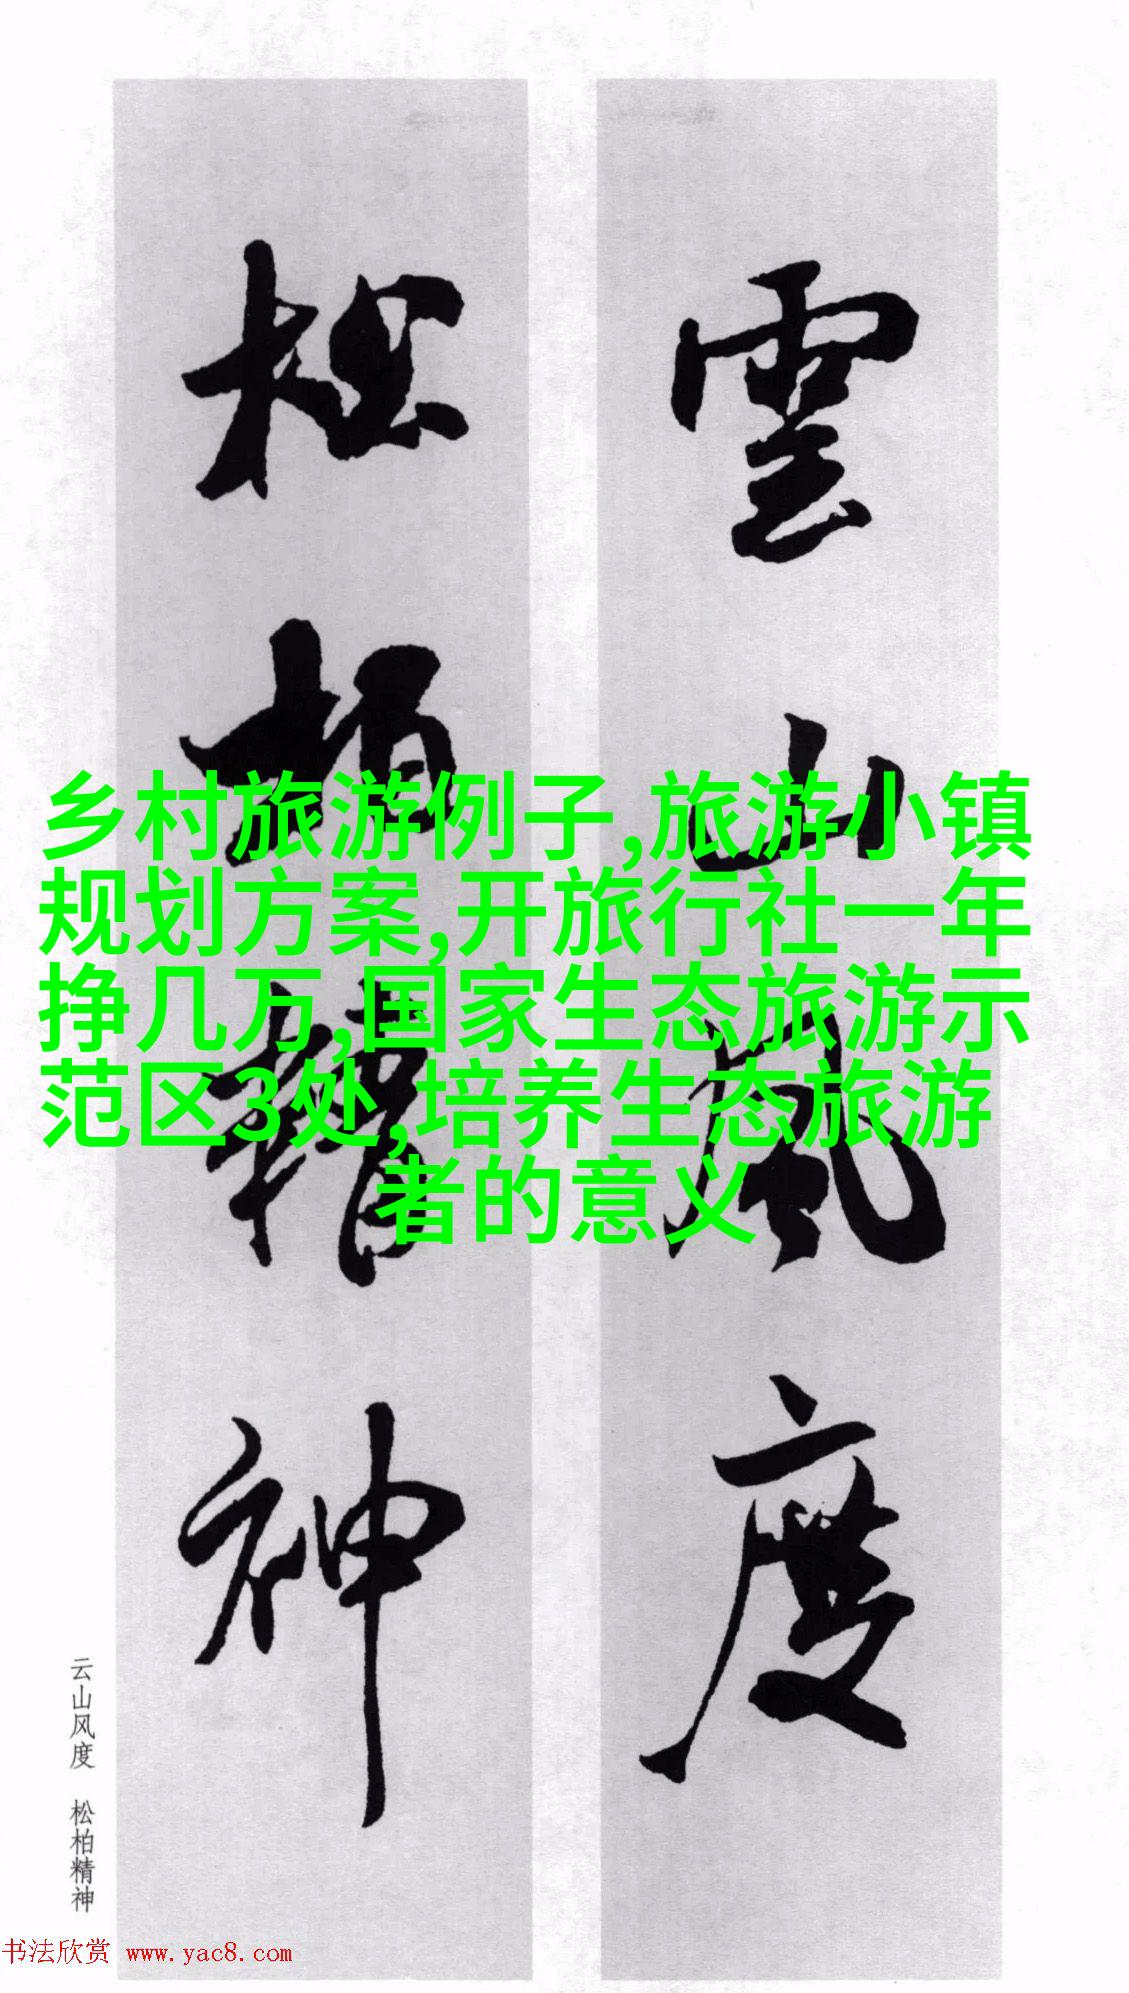 雲山風度
松柏精神
乡村旅游例子,旅游小镇
规划方案,开旅行社一年
挣几万,国家生态旅游示
范区3处,培养生态旅游
者的意义
云山风度 松柏精神
书法欣赏 www.yac8.com